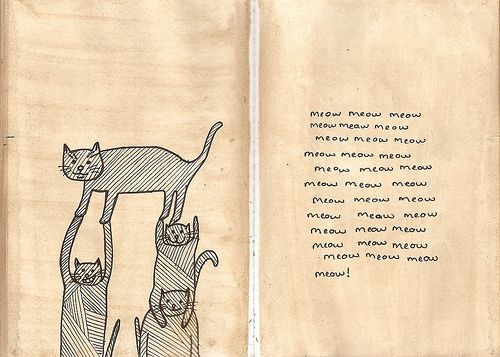 meow meow meow
meow meaw meow
meow meow meow
meow meow meow
meow meow meow
meow meow meow
meow meow meow
meow meaow meow
meow meow meow
meow meow meow
meow meow meow
meow!